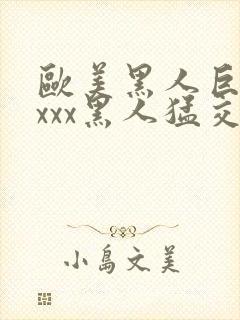 歐美黑人巨
xxx黑人猛交
小島文美